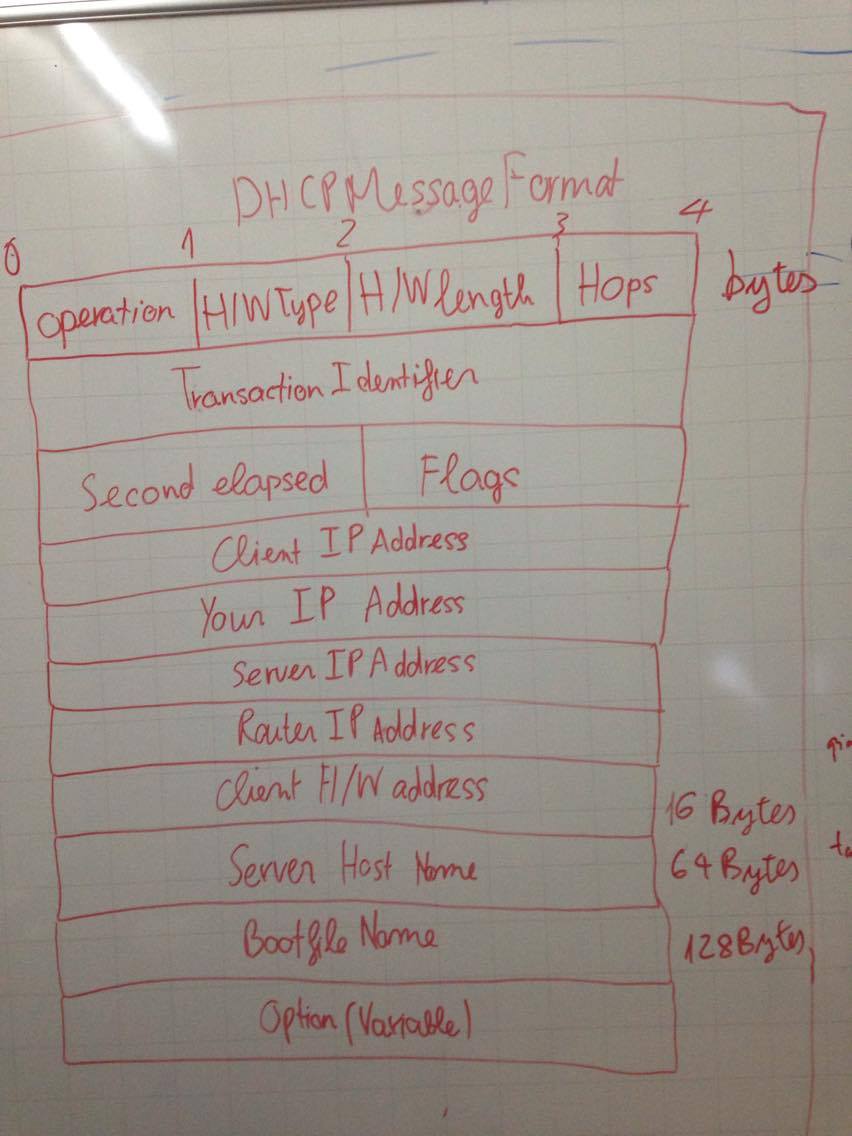 DHCP Message Format
0 1 2 3 4
operation H/W Type H/W length Hops bytes
Transaction Identifier
Second elapsed Flags
Client IP Address
Your IP Address
Server IP Address
Router IP Address
Client H/W address 16 Bytes
Server Host Name 64 Bytes
Bootfile Name 128 Bytes
Option (Variable)